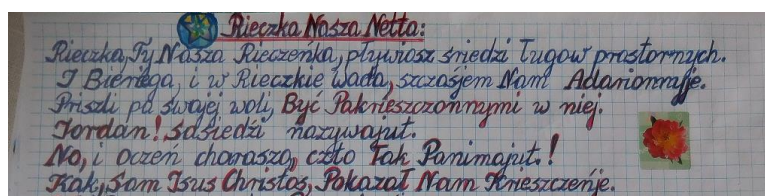 Rieczka Nasza Netta:
Rieczka, Ty Nasza Rieczeńka, pływiosz sriedzi Ługow prastornych.
I Bieriega, i w Rieczkie Wada, szczaśjem Nam Adarionnyje.
Priszli pa swajej woli, Być Pakrieszczonnymi w niej.
Jordan! Sasiedzi nazywajut.
No, i oczeń charaszo, czto Tak Panimajut.!
Kak, Sam Isus Christos, Pokazał Nam Krieszczeńje.